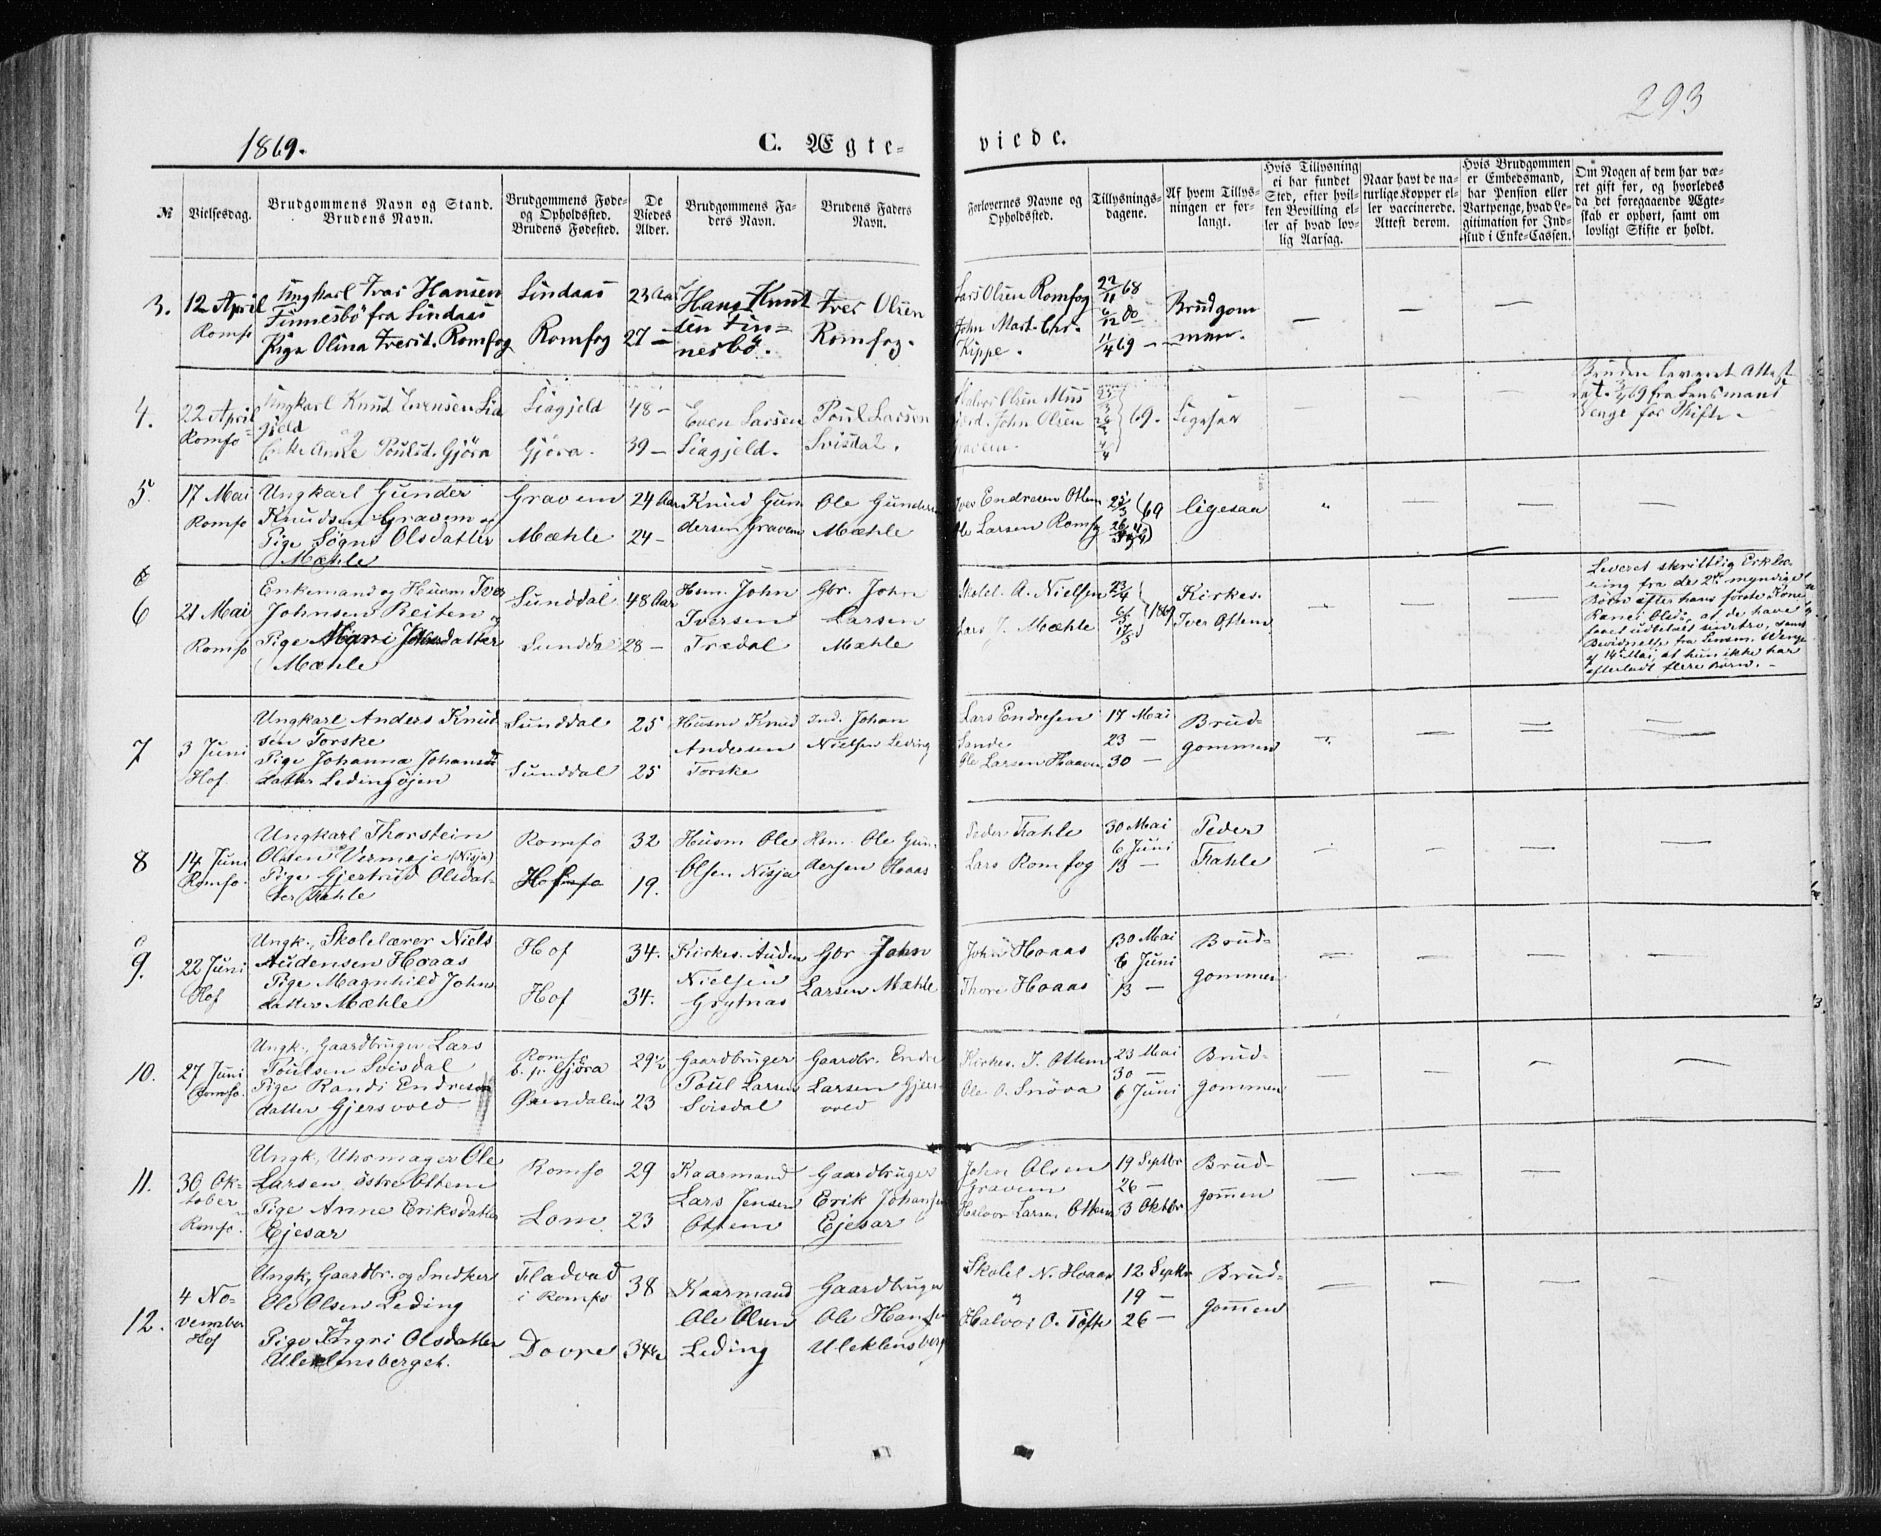 293
1869.
C. Ægte-
viede.
№
Vielsesdag.
Brudgommens Navn og Stand.
Brudens Navn.
Brudgommens Føde-
og Opholdssted.
Brudens Fødested.
De
Viedes
Alder.
Brudgommens Fa-
ders Navn.
Brudens Faders
Navn.
Forlovernes Navne og
Opholdssted.
Tillysnings-
dagene.
Af hvem Tillys-
ningen er for-
langt.
Hvis Tillysning
ei har fundet
Sted, efter hvil-
ken Bevilling el-
ler af hvad lov-
lig Aarsag.
Naar havt de na-
turlige Kopper el-
ler vaccinerede.
Attest derom.
Hvis Brudgommen
er Embedsmand,
har Pension eller
Vartpenge, hvad Le-
gitimation for Ind-
skud i Enke-Cassen.
Om Nogen af dem har væ-
ret gift før, og hvorledes
da det foregaaende Ægte-
skab er ophørt, samt om
lovligt Skifte er holdt.
3.
12 April
Romfo
Ungkarl Ivar Hansen
Finnesbö fra Lindaas
Pige Olina Iversd. Romfog
Lindaas
Romfog
23 Aar
27 —
Hans Knut
sen Fin=
nesbö.
Iver Olsen
Romfog.
Lars Olsen Romfog
John Mart. Chr.
Kippe.
22/11 68
6/12 do
11/4 69 —
Brudgom
men.
4.
22 April
Romfo
Ungkarl Knud Evensen Lia
gjeld og
Enke Anne Poulsd. Gjöra
Liagjeld
Gjöra.
48 —
39 —
Even Larsen
Liagjeld.
Poul Larsen
Svisdal.
Halvor Olsen Mus
John Olsen
Gravem.
69.
Ligesaa
Bruden leveret Attest
69 fra Lensmand
Wenge for Skifte.
5.
17 Mai
Romfo
Ungkarl Gunder
Knudsen Gravem og
Pige Søgni Olsdatter
Mæhle
Gravem
Mæhle
24 Aar
24 —
Knud Gun
dersen Gravem
Ole Gundersen
Mæhle
Iver Endresen Ottem
Ole Larsen Romfog
69
ligesaa
6
6
21 Mai
Romfo
Enkemand og Husm Iver
Johnsen Reiten og
Pige Mari Johnsdatter
Mæhle
Sunddal
Sunddal
48 Aar
28 —
Hsm. John
Iversen
Tredal
Gbr. John
Larsen
Mæhle
Skolel. A. Nielsen
Lars J. Mæhle
1869
Kirkes.
Iver Ottem
Leveret skriftlig Erklæ-
ring fra de 2de myndige
Børn efter hans første Kone
Olsd., at de have
faaet udbetalt sin Arv, samt
Bevidnelse fra Lensm. Wenge
af 14de Mai, at hun ikke har
efterladt flere Børn. —
7
3 Juni
Hof
Ungkarl Anders Knud
sen Torske
Pige Johanna Johans
datter Leding öjen
Sunddal
Sunddal
25
25
Husm Knud
Andersen
Torske
Ind. Johan
Nielsen Leding
Lars Endresen
Sande
Ole Larsen Hoaven
17 Mai
23 —
30 —
Brud-
gommen
8
14 Juni
Romfo.
Ungkarl Thorstein
Olsen Vermøje (Nisja)
Pige Gjertrud Olsdat-
ter Fahle
Romfo
Hof
32
19.
Husm Ole
Olsen Nisja
Hsm. Ole Gun-
dersen Hoaas
Peder Fahle
Lars Romfog
30 Mai
6 Juni
13 —
Peder
Fahle
9.
22 Juni
Hof
Ungk., Skolelærer Niels
Audensen Hoaas
Pige Magnhild John
datter Mæhle
Hof
Hof
34.
34.
Kirkes. Auden
Nielsen
Grytnas
Gbr John
Larsen Mæhle
John Hoaas
Thore Hoaas
30 Mai
6 Juni
13 —
Brud-
gommen
10.
27 Juni
Romfo.
Ungk., Gaardbruger Lars
Poulsen Svisdal
Pige Randi Endres
datter Gjersvold
Romfo
b. p. Gjöra
Grendalen
29 ½
23
Gaardbruger
Poul Larsen
Svisdal
Gaardbr. Endre
Larsen Gjers
vold
Kirkes. I. Ottem
Ole O. Snöva
23 Mai
30 —
6 Juni
Brud-
gommen
11.
30 Ok-
tober
Romfo.
Ungk., Uhrmager Ole
Larsen, östre Ottem
Pige Anne Eriksdatter
Ejesar
Romfo
Lom
29
23
Kaarmand
Lars Jensen
Ottem
Gaardbruger
Erik Johansen
Ejesar
John Olsen
Gravem
Halvor Larsen Ottem
19 Septbr
26 —
3 Oktbr
Brud-
gommen
12.
4 No-
vember
Hof
Ungk, Gaardbr. og Snedker
Ole Olsen Leding
og
Pige Ingri Olsdatter
Uleklensberget.
Fladvad
i Romfo
Dovre
38
34 ½
Kaarmand
Ole Olsen
Leding
Gaardbruger
Ole Hansen
Uleklensberg
Skolel N. Hoaas
Halvor O. Töfte
12 Septbr
19 —
26 —
Brud-
gommen